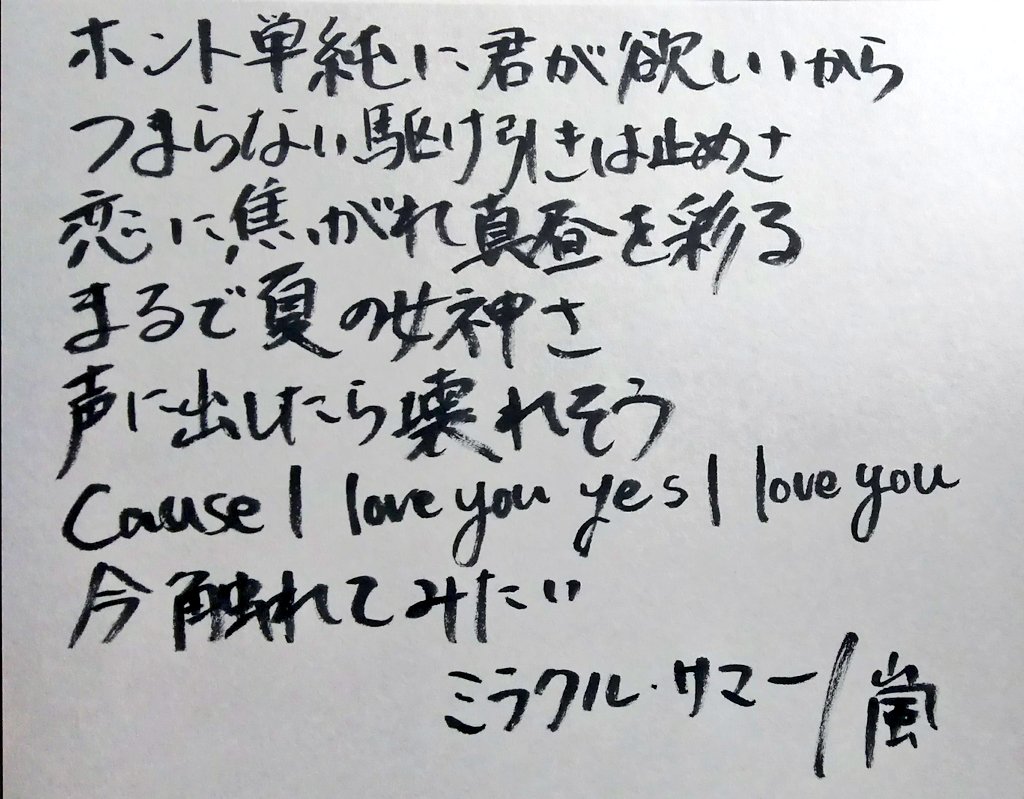 ホント単純に君が欲しいから
つまらない駆け引きは止めさ
恋に焦がれ真昼を彩る
まるで夏の女神さ
声に出したら壊れそう
Cause I love you yes I love you
今触れてみたい
ミラクル・サマー/嵐